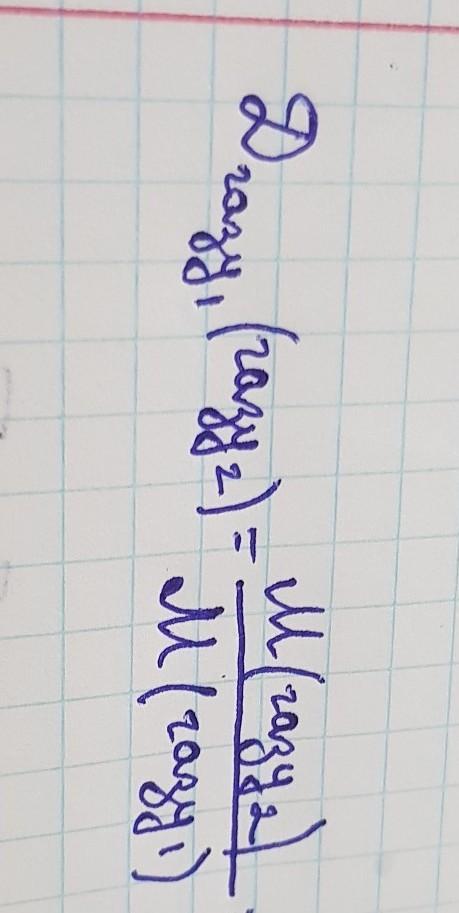 D газу1 (газу2) = M(газу2) / M(газу1)